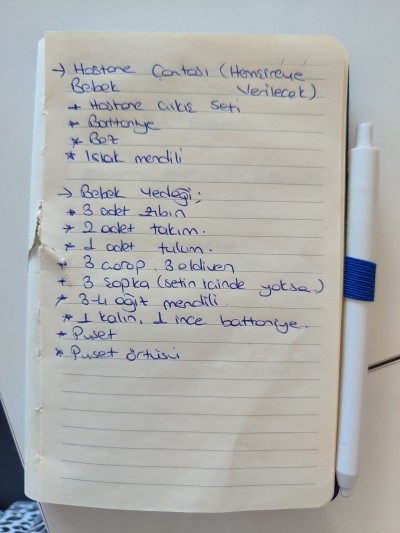 → Hastane Çantası (Hemşireye
Bebek Verilecek)
* Hastane çıkış seti
* Battaniye
* Bez
* Islak mendili
→ Bebek Yedeği;
* 3 adet zıbın
* 2 adet takım.
* 1 adet tulum.
* 3 çorap, 3 eldiven
* 3 şapka (setin içinde yoksa)
* 3-4 ağız mendili.
* 1 kalın, 1 ince battaniye.
* Puset
* Puset örtüsü